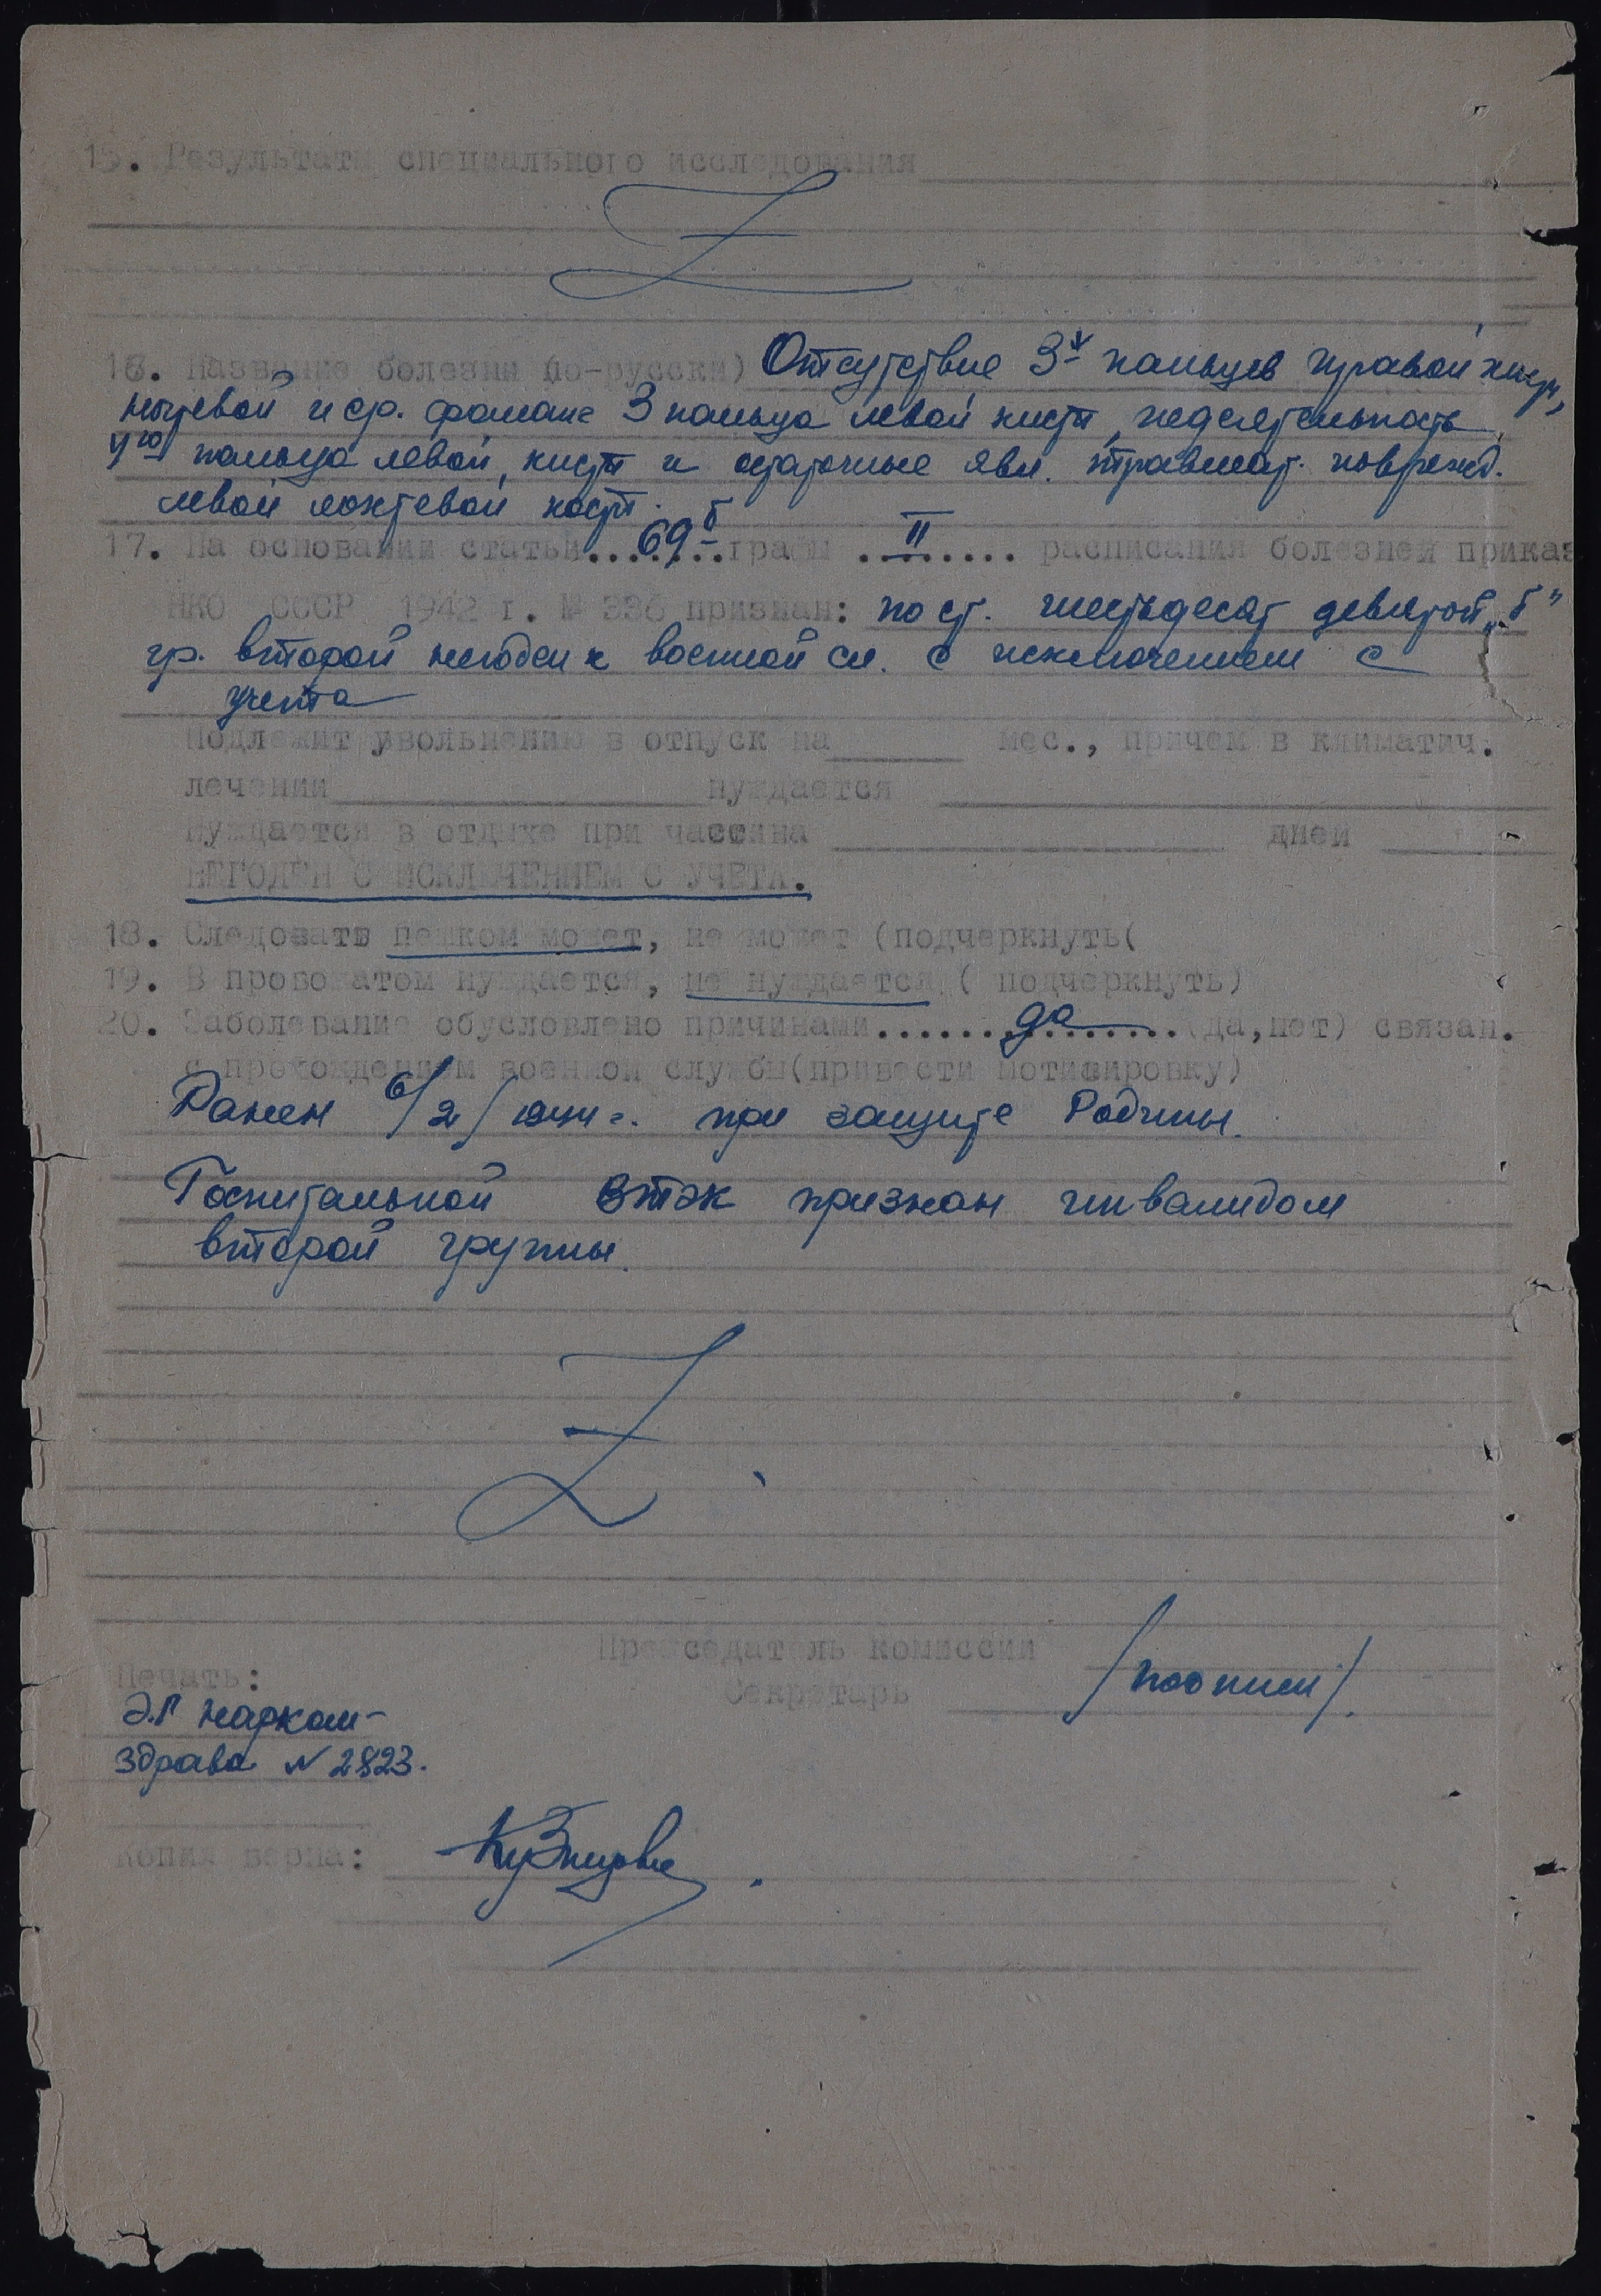 15. Результаты специального исследования
16. Название болезни (по-русски) Отсутствие 3х пальцев правой кисти,
ногтевой и ср. фаланг 3 пальца левой кисти, недеятельность
4го пальца левой кисти и остаточные явл. травмат. поврежд.
левой локтевой кости.
17. На основании статьи...69б..графы ..II..... расписания болезней приказ
НКО СССР 1942 г. № 336 признан: по ст. шестьдесят девятой „б"
гр. второй негоден к военной сл. с исключением с
учета
Подлежит увольнению в отпуск на мес., причем в климатич.
лечении нуждается
Нуждается в отдыхе при части на дней
НЕГОДЕН С ИСКЛЮЧЕНИЕМ С УЧЕТА.
18. Следовать пешком может, не может (подчеркнуть(
19. В провожатом нуждается, не нуждается ( подчеркнуть)
20. Заболевание обусловлено причинами......да.......(да,нет) связан.
с прохождением военной службы(привести мотивировку)
Ранен 6/2/1944 г. при защите Родины.
Госпитальной ВТЭК признан инвалидом
второй группы.
Председатель комиссии
Печать: Секретарь /подписи/.
Э.Г Нарком-
здрава № 2823.
Копия верна: